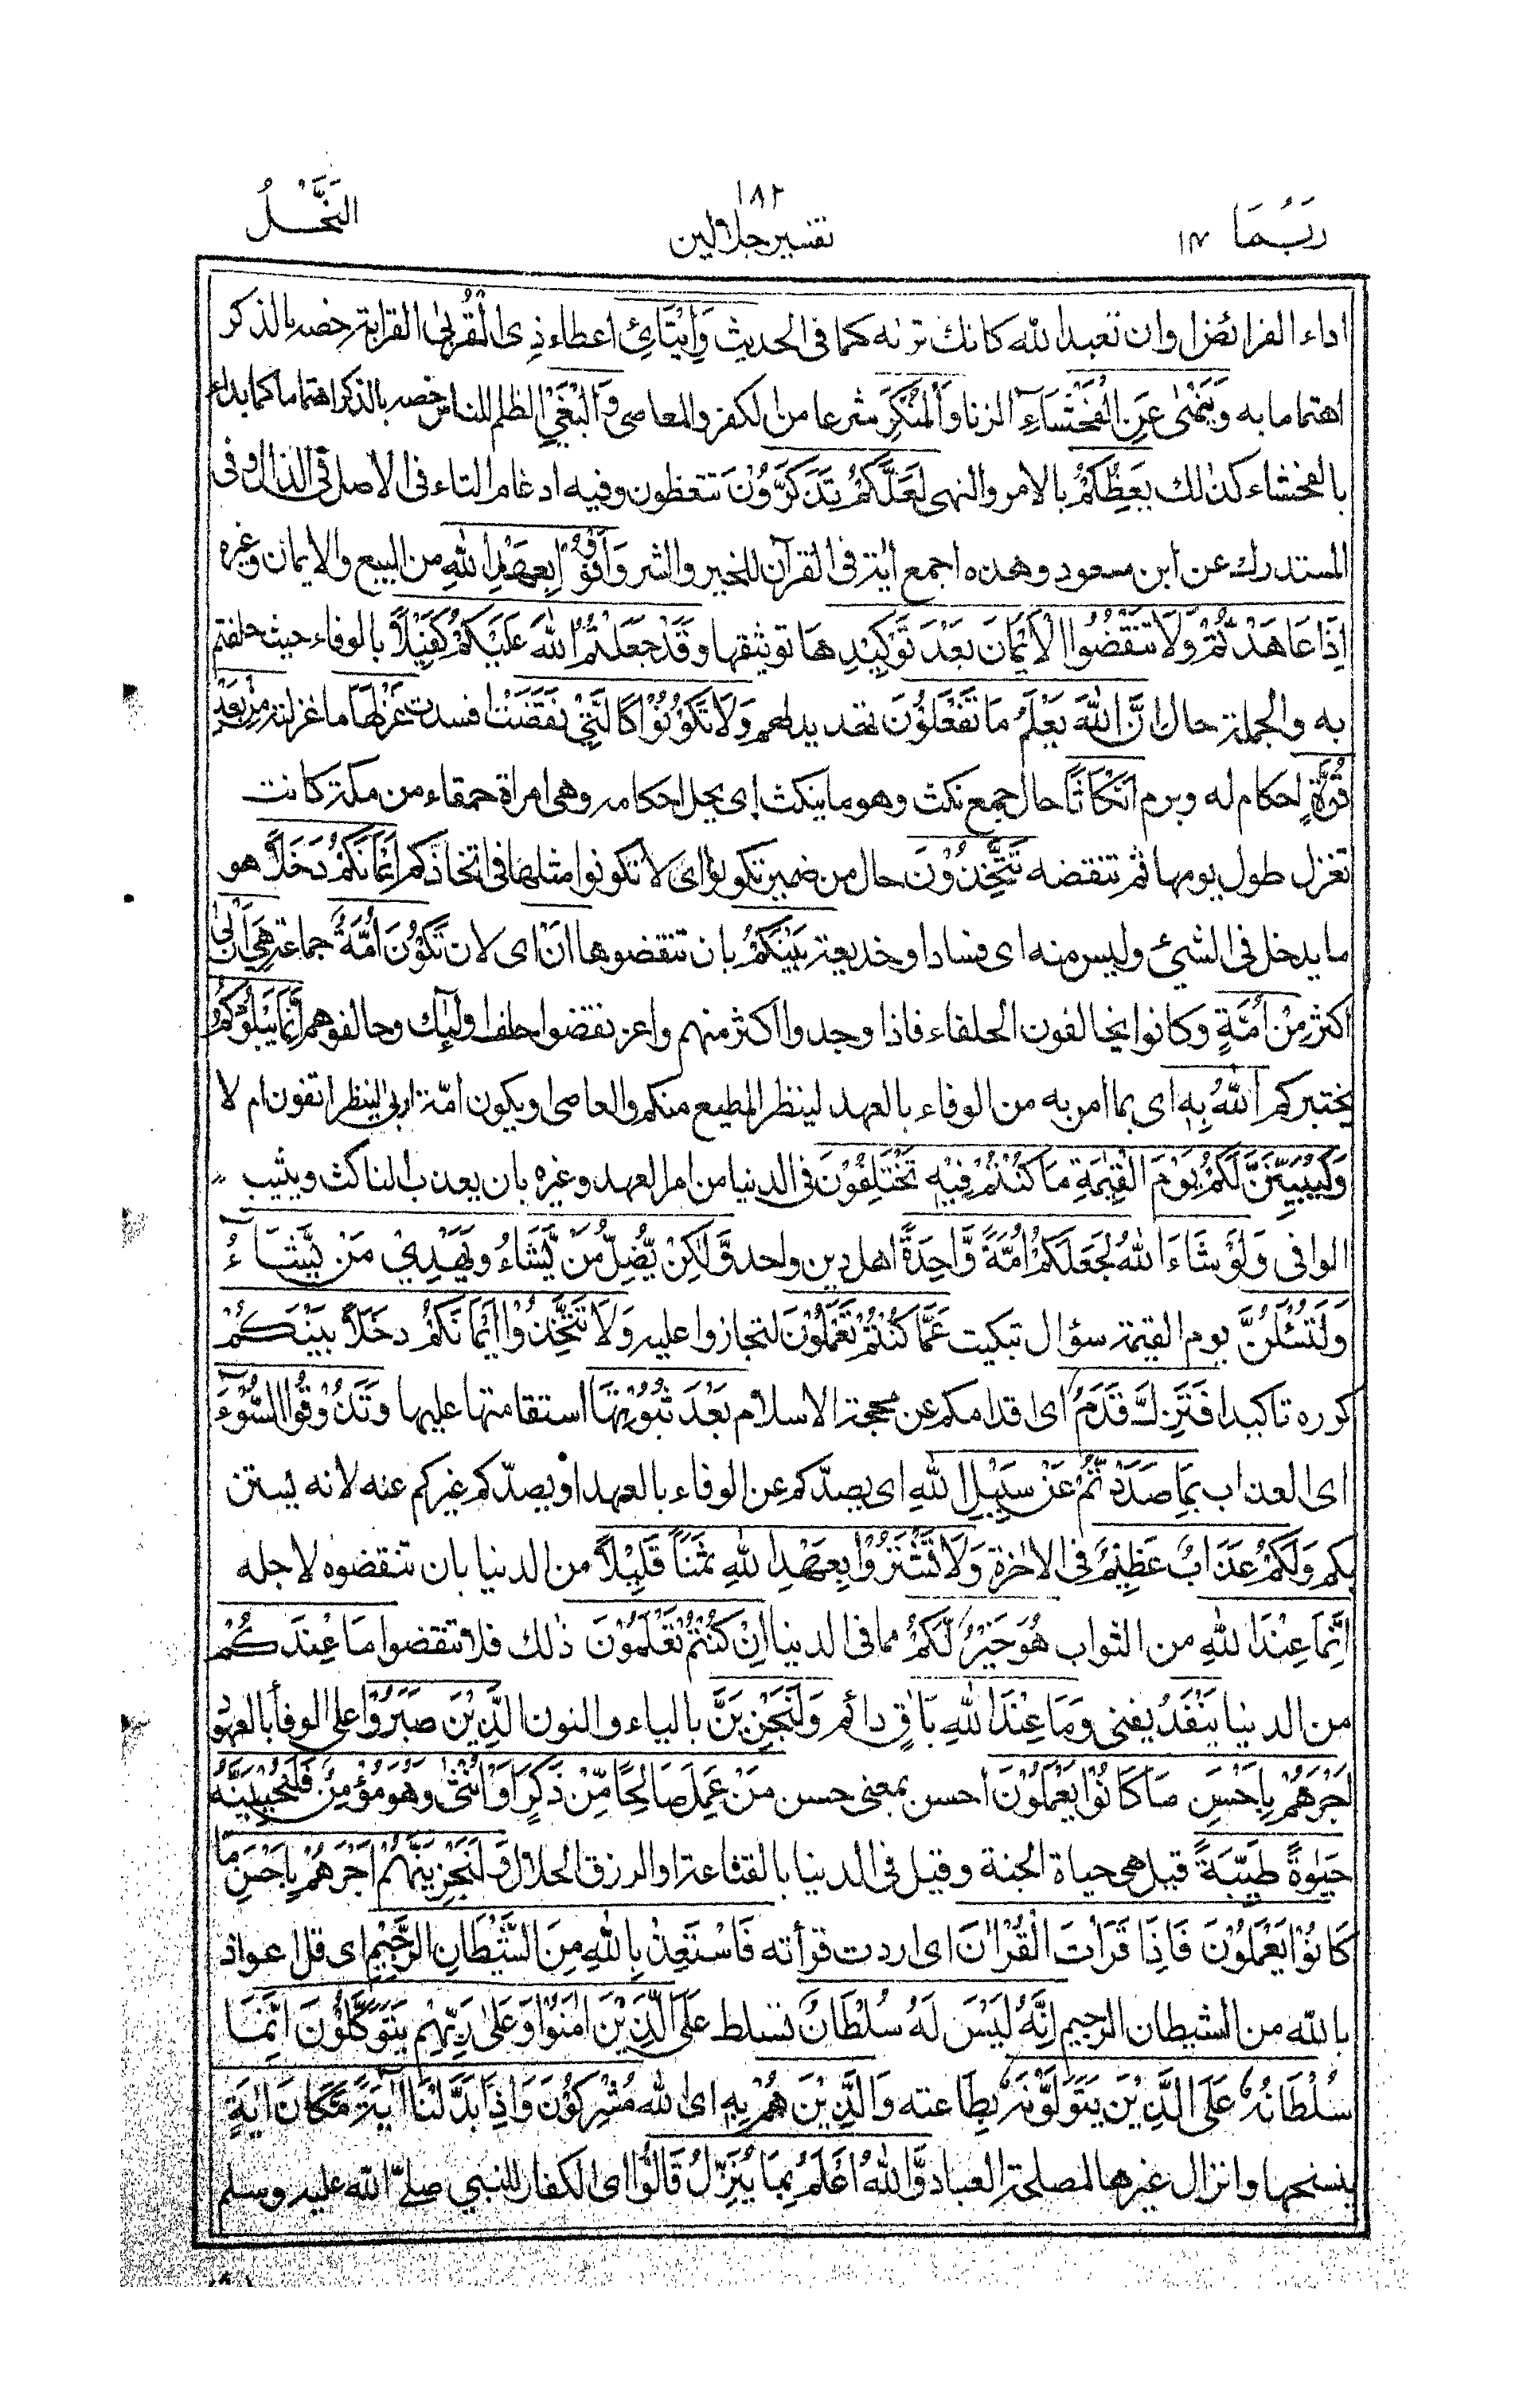 ربما ١٤
١٨٢
تفسير جلالين
النَّحْلُ
اداء الفرائض او ان تعبد الله كانك تراه كما فى الحديث وَاِيْتَآئِ اعطاء ذِى الْقُرْبٰى القرابة خصه بالذكر
اهتماما به وَيَنْهٰى عَنِ الْفَحْشَآءِ الزنا وَالْمُنْكَرِ شرعا من الكفر والمعاصى وَالْبَغْيِ الظلم للناس خصه بالذكر اهتماما كما بداء
بالفحشاء كذلك يَعِظُكُمْ بالامر والنهى لَعَلَّكُمْ تَذَكَّرُوْنَ تتعظون وفيه ادغام التاء فى الاصل فى الذال وفى
المستدرك عن ابن مسعود وهذه اجمع اٰية فى القرآن للخير والشر وَاَوْفُوْا بِعَهْدِ اللّٰهِ من البيع والايمان وغيره
اِذَا عَاهَدْتُّمْ وَلَا تَنْقُضُوا الْاَيْمَانَ بَعْدَ تَوْكِيْدِهَا توثيقها وَقَدْ جَعَلْتُمُ اللّٰهَ عَلَيْكُمْ كَفِيْلًا بالوفاء حيث حلفتم
به والجملة حال اِنَّ اللّٰهَ يَعْلَمُ مَا تَفْعَلُوْنَ تهديد لهم وَلَا تَكُوْنُوْا كَالَّتِيْ نَقَضَتْ افسدت غَزْلَهَا ما غزلته مِنْ بَعْدِ
قُوَّةٍ احكام له وبرم اَنْكَاثًا حال جمع نكث وهو ما ينكث اى يحل احكامه وهى امراة حمقاء من مكة كانت
تغزل طول يومها ثم تنقضه تَتَّخِذُوْنَ حال من ضمير تكونوا اى لا تكونوا مثلها فى اتخاذكم اَيْمَانَكُمْ دَخَلًا هو
ما يدخل فى الشيئ وليس منه اى فسادا وخديعة بَيْنَكُمْ بان تنقضوها اَنْ اى لان تَكُوْنَ اُمَّةٌ جماعة هِىَ اَرْبٰى
اكثر مِنْ اُمَّةٍ وكانوا يحالفون الحلفاء فاذا وجدوا اكثر منهم واعز نقضوا حلف اولٰئك وحالفوهم اِنَّمَا يَبْلُوْكُمُ
يختبركم اللّٰهُ بِهٖ اى بما امر به من الوفاء بالعهد لينظر المطيع منكم والعاصى او يكون امّة اربى لينظر اتفون ام لا
وَلَيُبَيِّنَنَّ لَكُمْ يَوْمَ الْقِيٰمَةِ مَا كُنْتُمْ فِيْهِ تَخْتَلِفُوْنَ فى الدنيا من امر العهد وغيره بان يعذب الناكث ويثيب
الوافى وَلَوْ شَآءَ اللّٰهُ لَجَعَلَكُمْ اُمَّةً وَّاحِدَةً اهل دين واحد وَّلٰكِنْ يُّضِلُّ مَنْ يَّشَآءُ وَيَهْدِيْ مَنْ يَّشَآءُ
وَلَتُسْئَلُنَّ يوم القيٰمة سؤال تبكيت عَمَّا كُنْتُمْ تَعْمَلُوْنَ لتجازوا عليه وَلَا تَتَّخِذُوْا اَيْمَانَكُمْ دَخَلًا بَيْنَكُمْ
كرره تاكيدا فَتَزِلَّ قَدَمٌ اى اقدامكم عن محجة الاسلام بَعْدَ ثُبُوْتِهَا استقامتها عليها وَتَذُوْقُوا السُّوْٓءَ
اى العذاب بِمَا صَدَدْتُّمْ عَنْ سَبِيْلِ اللّٰهِ اى بصدّكم عن الوفاء بالعهد او بصدّكم غيركم عنه لانه يستن
بكم وَلَكُمْ عَذَابٌ عَظِيْمٌ فى الاخرة وَلَا تَشْتَرُوْا بِعَهْدِ اللّٰهِ ثَمَنًا قَلِيْلًا من الدنيا بان تنقضوه لاجله
اِنَّمَا عِنْدَ اللّٰهِ من الثواب هُوَ خَيْرٌ لَّكُمْ مما فى الدنيا اِنْ كُنْتُمْ تَعْلَمُوْنَ ذٰلك فلا تنقضوا مَا عِنْدَكُمْ
من الدنيا يَنْفَدُ يفنى وَمَا عِنْدَ اللّٰهِ بَاقٍ دائم وَلَنَجْزِيَنَّ بالياء والنون الَّذِيْنَ صَبَرُوْا على الوفأ بالعهود
اَجْرَهُمْ بِاَحْسَنِ مَا كَانُوْا يَعْمَلُوْنَ احسن بمعنى حسن مَنْ عَمِلَ صَالِحًا مِّنْ ذَكَرٍ اَوْ اُنْثٰى وَهُوَ مُؤْمِنٌ فَلَنُحْيِيَنَّهٗ
حَيٰوةً طَيِّبَةً قيل هى حياة الجنة وقيل فى الدنيا بالقناعة او الرزق الحلال وَلَنَجْزِيَنَّهُمْ اَجْرَهُمْ بِاَحْسَنِ مَا
كَانُوْا يَعْمَلُوْنَ فَاِذَا قَرَاْتَ الْقُرْاٰنَ اى اردت قرأته فَاسْتَعِذْ بِاللّٰهِ مِنَ الشَّيْطَانِ الرَّجِيْمِ اى قل اعوذ
بالله من الشيطان الرجيم اِنَّهٗ لَيْسَ لَهٗ سُلْطَانٌ تسلط عَلَى الَّذِيْنَ اٰمَنُوْا وَعَلٰى رَبِّهِمْ يَتَوَكَّلُوْنَ اِنَّمَا
سُلْطَانُهٗ عَلَى الَّذِيْنَ يَتَوَلَّوْنَهٗ بطاعته وَالَّذِيْنَ هُمْ بِهٖ اى الله مُشْرِكُوْنَ وَاِذَا بَدَّلْنَا اٰيَةً مَّكَانَ اٰيَةٍ
بنسخها وانزال غيرها لمصلحة العباد وَّاللّٰهُ اَعْلَمُ بِمَا يُنَزِّلُ قَالُوْا اى الكفار للنبي صلّى الله عليه وسلم